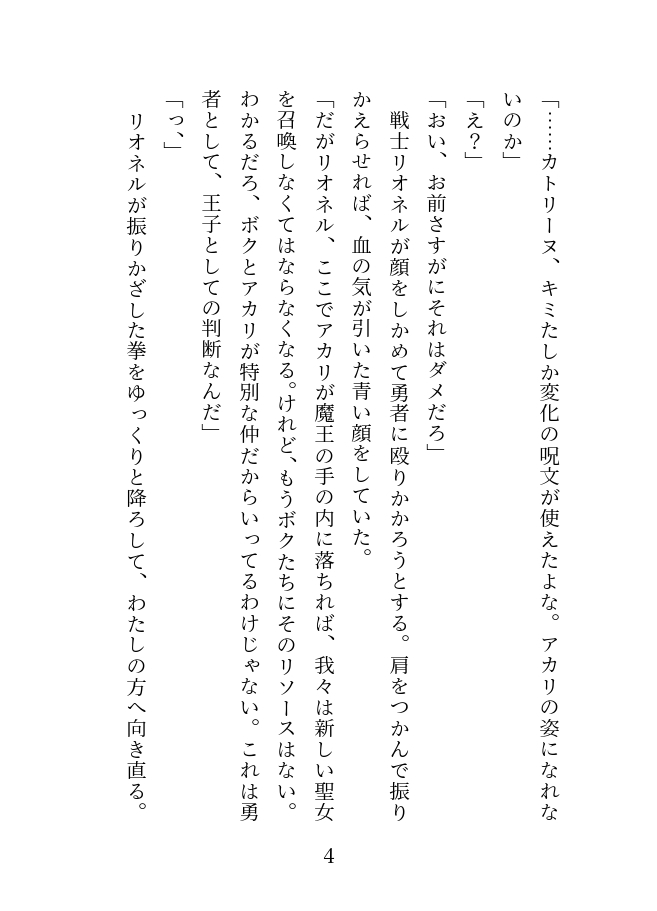 「……カトリーヌ、キミたしか変化の呪文が使えたよな。アカリの姿になれな
いのか」
「え？」
「おい、お前さすがにそれはダメだろ」
戦士リオネルが顔をしかめて勇者に殴りかかろうとする。肩をつかんで振り
かえらせれば、血の気が引いた青い顔をしていた。
「だがリオネル、ここでアカリが魔王の手の内に落ちれば、我々は新しい聖女
を召喚しなくてはならなくなる。けれど、もうボクたちにそのリソースはない。
わかるだろ、ボクとアカリが特別な仲だからいってるわけじゃない。これは勇
者として、王子としての判断なんだ」
「っ、」
リオネルが振りかざした拳をゆっくりと降ろして、わたしの方へ向き直る。
4